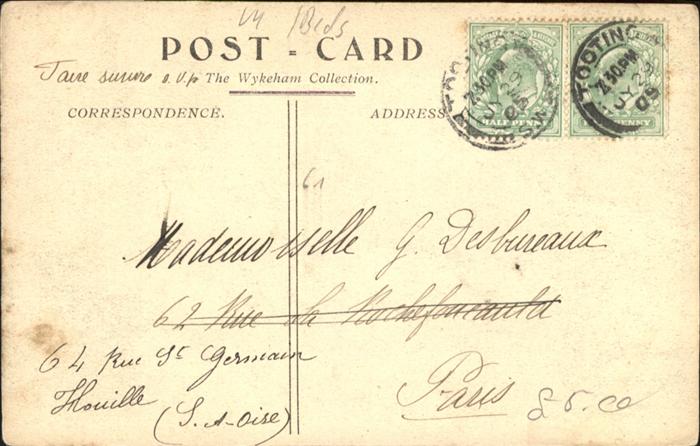 Beds
POST - CARD
Faire suivre s. v. p. The Wykeham Collection.
CORRESPONDENCE. ADDRESS
TOOTING
7.30 PM
JY 22
09
S.W.
HALF PENNY
TOOTING
7.30 PM
JY 22
09
PENNY
61
Mademoiselle G. Desbureaux
62 Rue de la Rochefoucauld
64 Rue St Germain
Houille
(S. et-Oise)
Paris